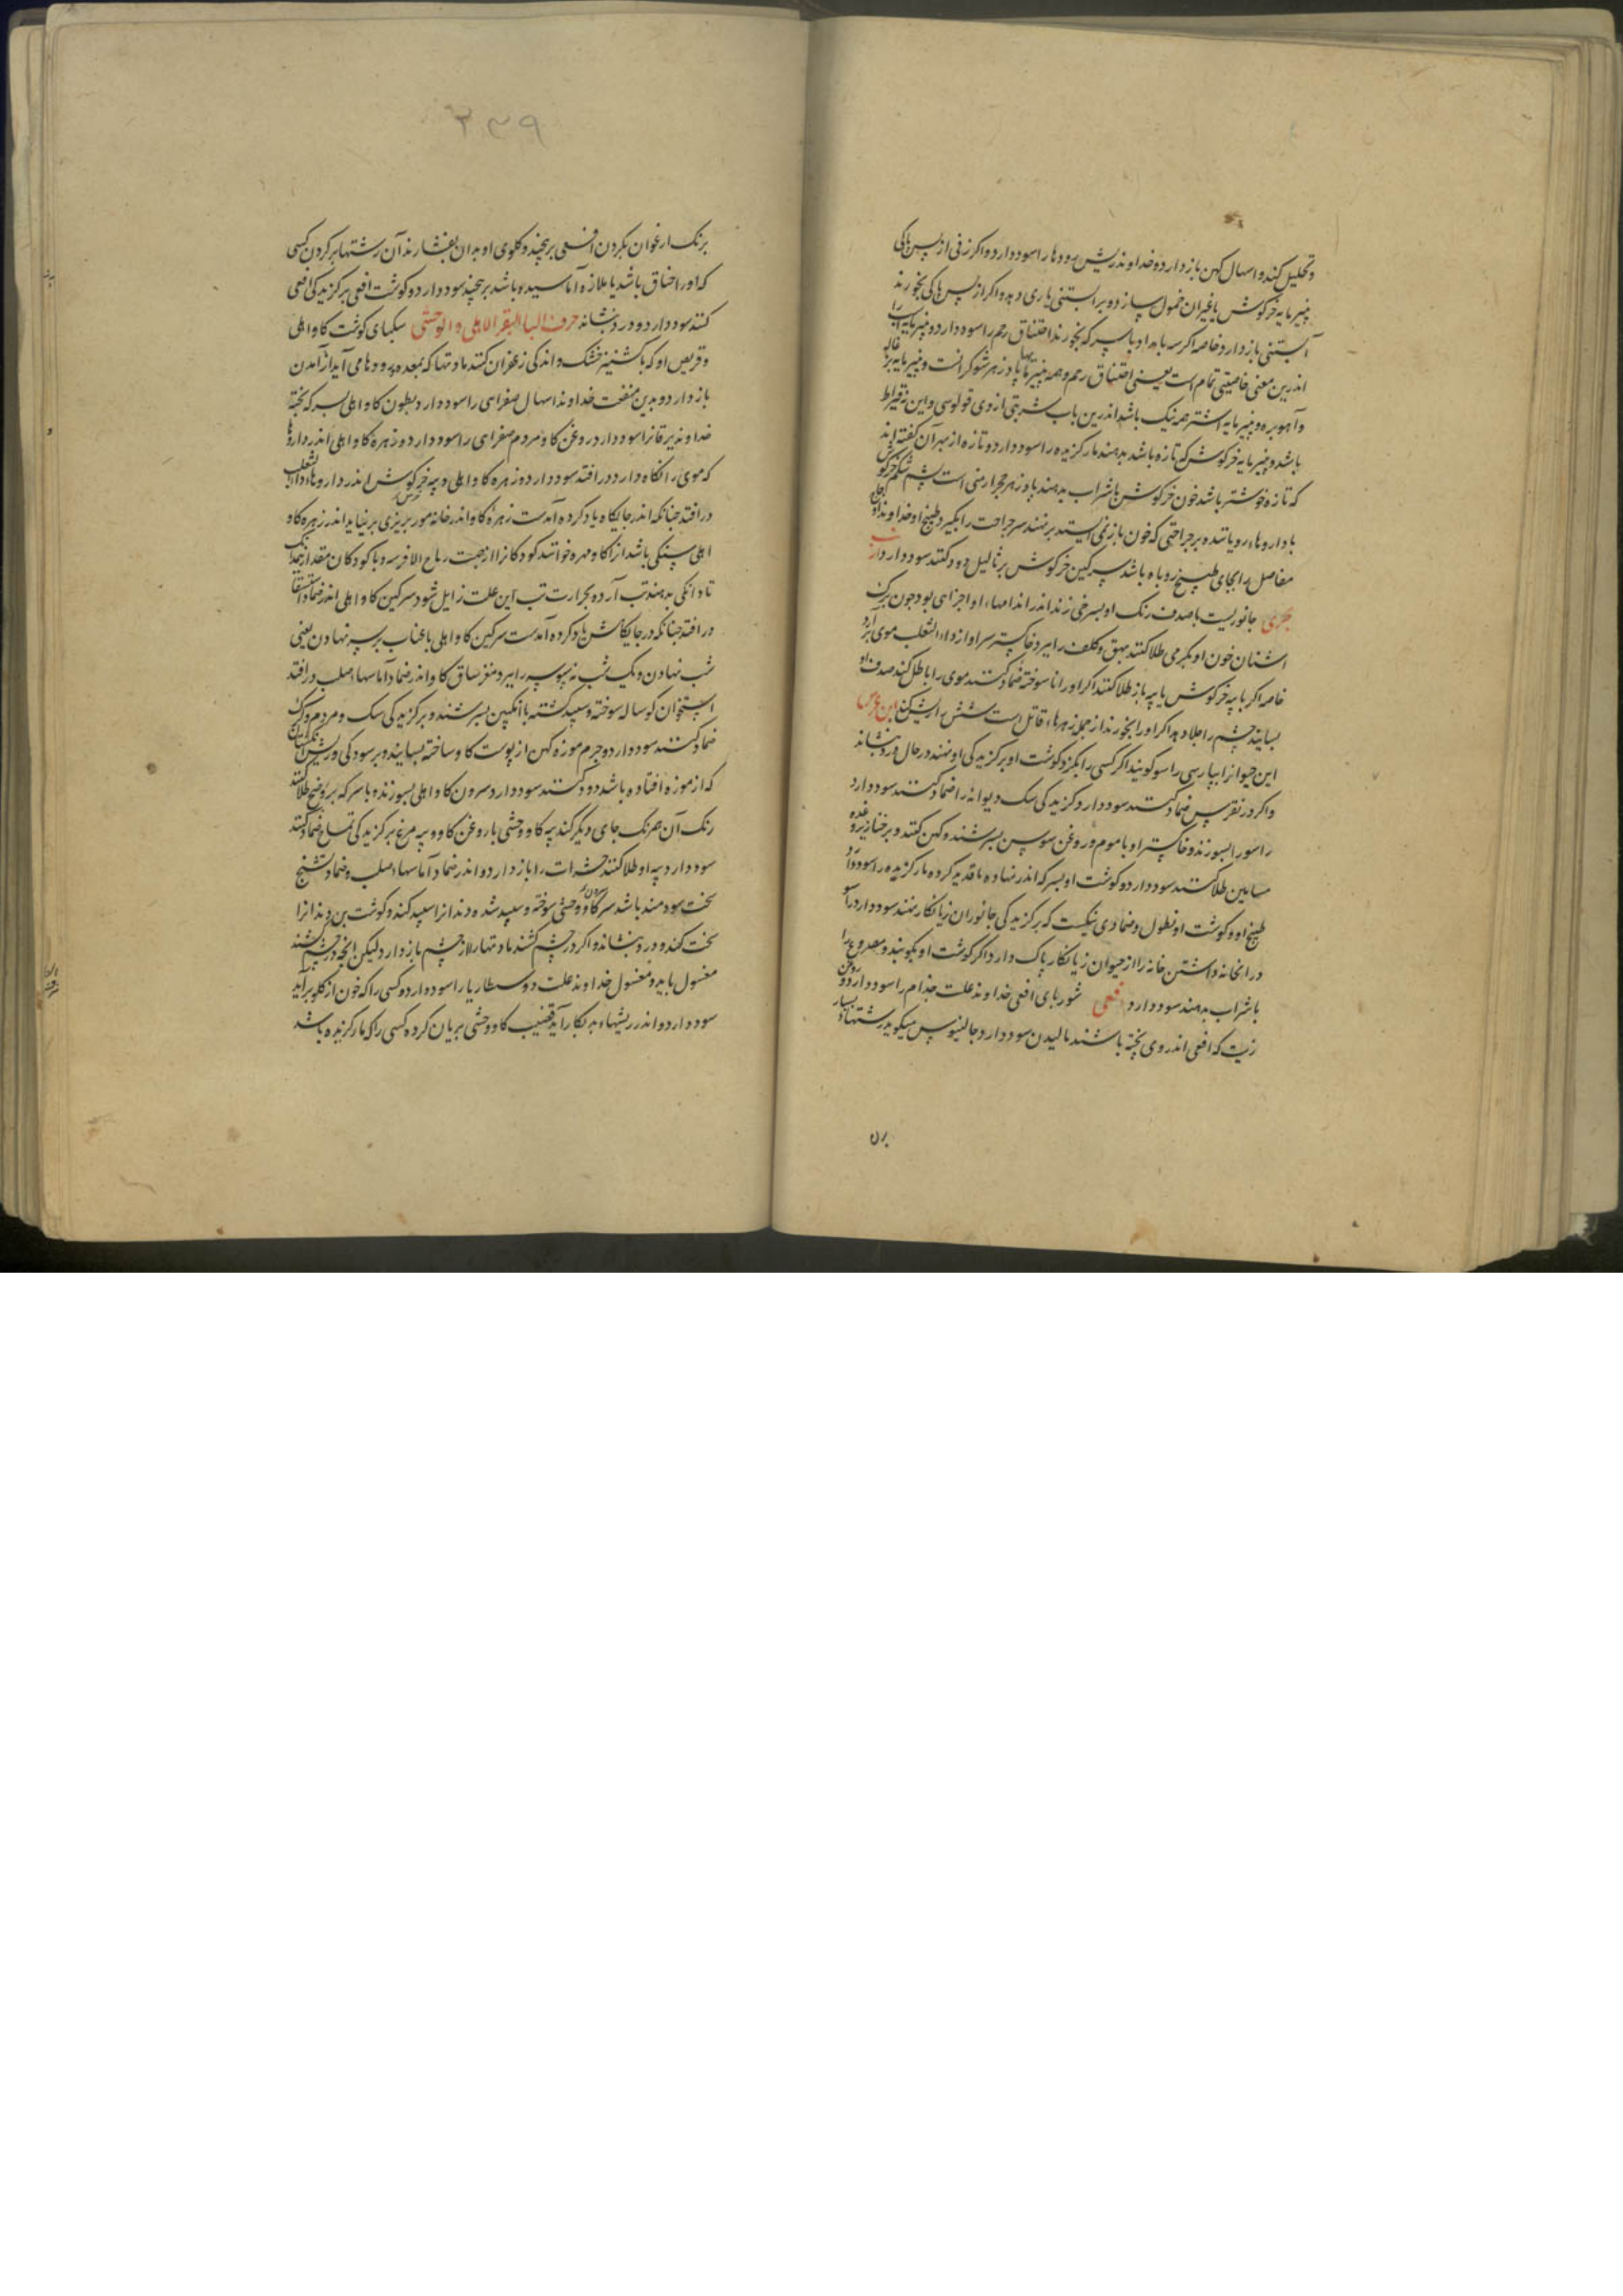 وتحلیل کند و اسهال کهن باز دارد و خداوند ریش روده‌ها را سود دارد و اگر زنی از پس پاکی
پنیر مایه خرکوش با غیران خمول سازد و بر آبستنی یاری دهد و اکر از پس پاکی بخورند
آبستنی باز دارد و خاصه اکر سه بامداد با سرکه بخورند اختناق رحم را سود دارد و پنیر مایه اسب را
اندرین معنی خاصیتی تمام است یعنی اختناق رحم و همه پنیر مایها پادزهر شوکرانست و پنیر مایه بزغاله
وآهو بره و پنیر مایه اشتر همه نیک باشد اندرین باب شربتی از وی قولوسی و این نه قیراط
باشد و پنیر مایه خرکوش که تازه باشد بدهند مار کزیده را سود دارد و تازه از بهر آن کفته اند
که تازه خوشتر باشد خون خرکوش با شراب بدهند پادزهر حجر ارمنی است پشم شکم خرکوش
با داروهاء رویاننده بر جراحتی که خون باز نمی ایستد برنهند سر جراحت را بکیرد طبیخ او خداوند اوجاع
مفاصل را بجای طبیخ روباه باشد سرکین خرکوش بر ثالیل دود کنند سود دارد ارنب
بحری جانوریست با صدف رنک او بسرخی زند اندر اندامهاء او اجزای بود چون برک
اشنان خون او بکرمی طلا کنند بهق و کلف را ببرد خاکستر سر او از داء الثعلب موی برآرد
خاصه اکر با پیه خرکوش یا پیه باز طلا کنند اکر او را ناسوخته ضماد کنند موی را باطل کند صدف او
بسایند چشم را جلا دهد اکر او را بخورند از جمله زهرهاء قاتل است شش را ریش کند ابن عرس
این حیوانرا بپارسی راسو کویند اکر کسی را بکزد کوشت او بر کزیدکی او نهند در حال درد بنشاند
واکر در نقرس ضماد کنند سود دارد و کزیدکی سک دیوانه را ضماد کنند سود دارد
راسو را بسوزند و خاکستر او با موم و روغن سوسن بسرشند و کهن کنند و بر خنازیر و غده
مسامین طلا کنند سود دارد و کوشت او بسرکه اندر نهاده تا قدید کرده مار کزیده را سود دارد
طبیخ او و کوشت او نطول و ضمادی نیکست که بر کزیدکی جانوران زیانکار نهند سود دارد راسو
در انخانه داشتن خانه را از حیوان زیانکار پاک دارد اکر کوشت او بکوبند و مصروع را
با شراب بدهند سود دارد افعی شوربای افعی خداوند علت جذام را سود دارد و روغن
زیت که افعی اندر وی پخته باشند مالیدن سود دارد جالینوس میکوید رشتهاء بسیار
برن
۲۳۹
برنک ارغوان بکردن افعی برپیچند و کلوی او بدان بفشارند آن رشتها بر کردن کسی
که او را خناق باشد یا ملازه آماسیده باشد برپیچند سود دارد و کوشت افعی بر کزیدکی افعی
کنند سود دارد و درد بنشاند حرف البا البقر الاهلی و الوحشی سکبای کوشت کاو اهلی
وقریص او که با کشنیز خشک و اندکی زعفران کنند مادتها که بمعده و رودها می آید از آمدن
باز دارد و بدین منفعت خداوند اسهال صفرای را سود دارد و بطون کاو اهلی بسرکه پخته
خداوند یرقانرا سود دارد روغن کاو مردم صفرای را سود دارد و زهره کاو اهلی اندر داروها
که موی را نکاه دارد در افتد سود دارد و زهره کاو اهلی و پیه خرکوش اندر داروهاء داء الثعلب
در افتد چنانکه اندر جایکاه یاد کرده آمدست زهره کاو اندر خانه مور بریزی برنیاید اندر زهره کاو
اهلی سنکی باشد از آن کاو مهره خوانند کودکانرا از جهت ریاح الافرسه و با کودکان مقدار نیم دانک
تا دانکی بدهند تب آرد و بحرارت تب این علت زایل شود سرکین کاو اهلی اندر ضماد استسقا
در افتد چنانکه در جایکاهش یاد کرده آمدست سرکین کاو اهلی با عناب بر سپر نهادن یعنی
شب نهادن و یک شب نه سپرز را ببرد مغز ساق کاو اندر ضماد آماسهاء صلب در افتد
استخوان کوساله سوخته و سپید کشته با انکبین بسرشند و بر کزیدکی سک و مردم و کرک
ضماد کنند سود دارد و چرم موزه کهن از پوست کاو ساخته بسایند و بر سودکی و ریش انکشتان
که از موزه افتاده باشد دود کنند سود دارد سرون کاو اهلی بسوزند و با سرکه بر وضح طلا کنند
رنک آن همرنک جای دیکر کند پیه کاو وحشی با روغن کاو و پیه مرغ بر کزیدکی تمساح ضماد کنند
سود دارد پیه او طلا کنند حشرات را باز دارد و اندر ضماد آماسهاء صلب و ضماد تشنج
سخت سودمند باشد سرون کاو وحشی سوخته و سپید شده دندانرا سپید کند و کوشت بن دندانرا
سخت کند و درد بنشاند و اکر در چشم کشند مادتها را از چشم باز دارد و لیکن انچه در چشم کشند
مغسول باید و مغسول خداوند علت دوسنطاریا را سود دارد و کسی را که خون از کلو برآید
سود دارد و اندر ریشهاء بد بکار آید قضیب کاو وحشی بریان کرده کسی را که مار کزیده باشد